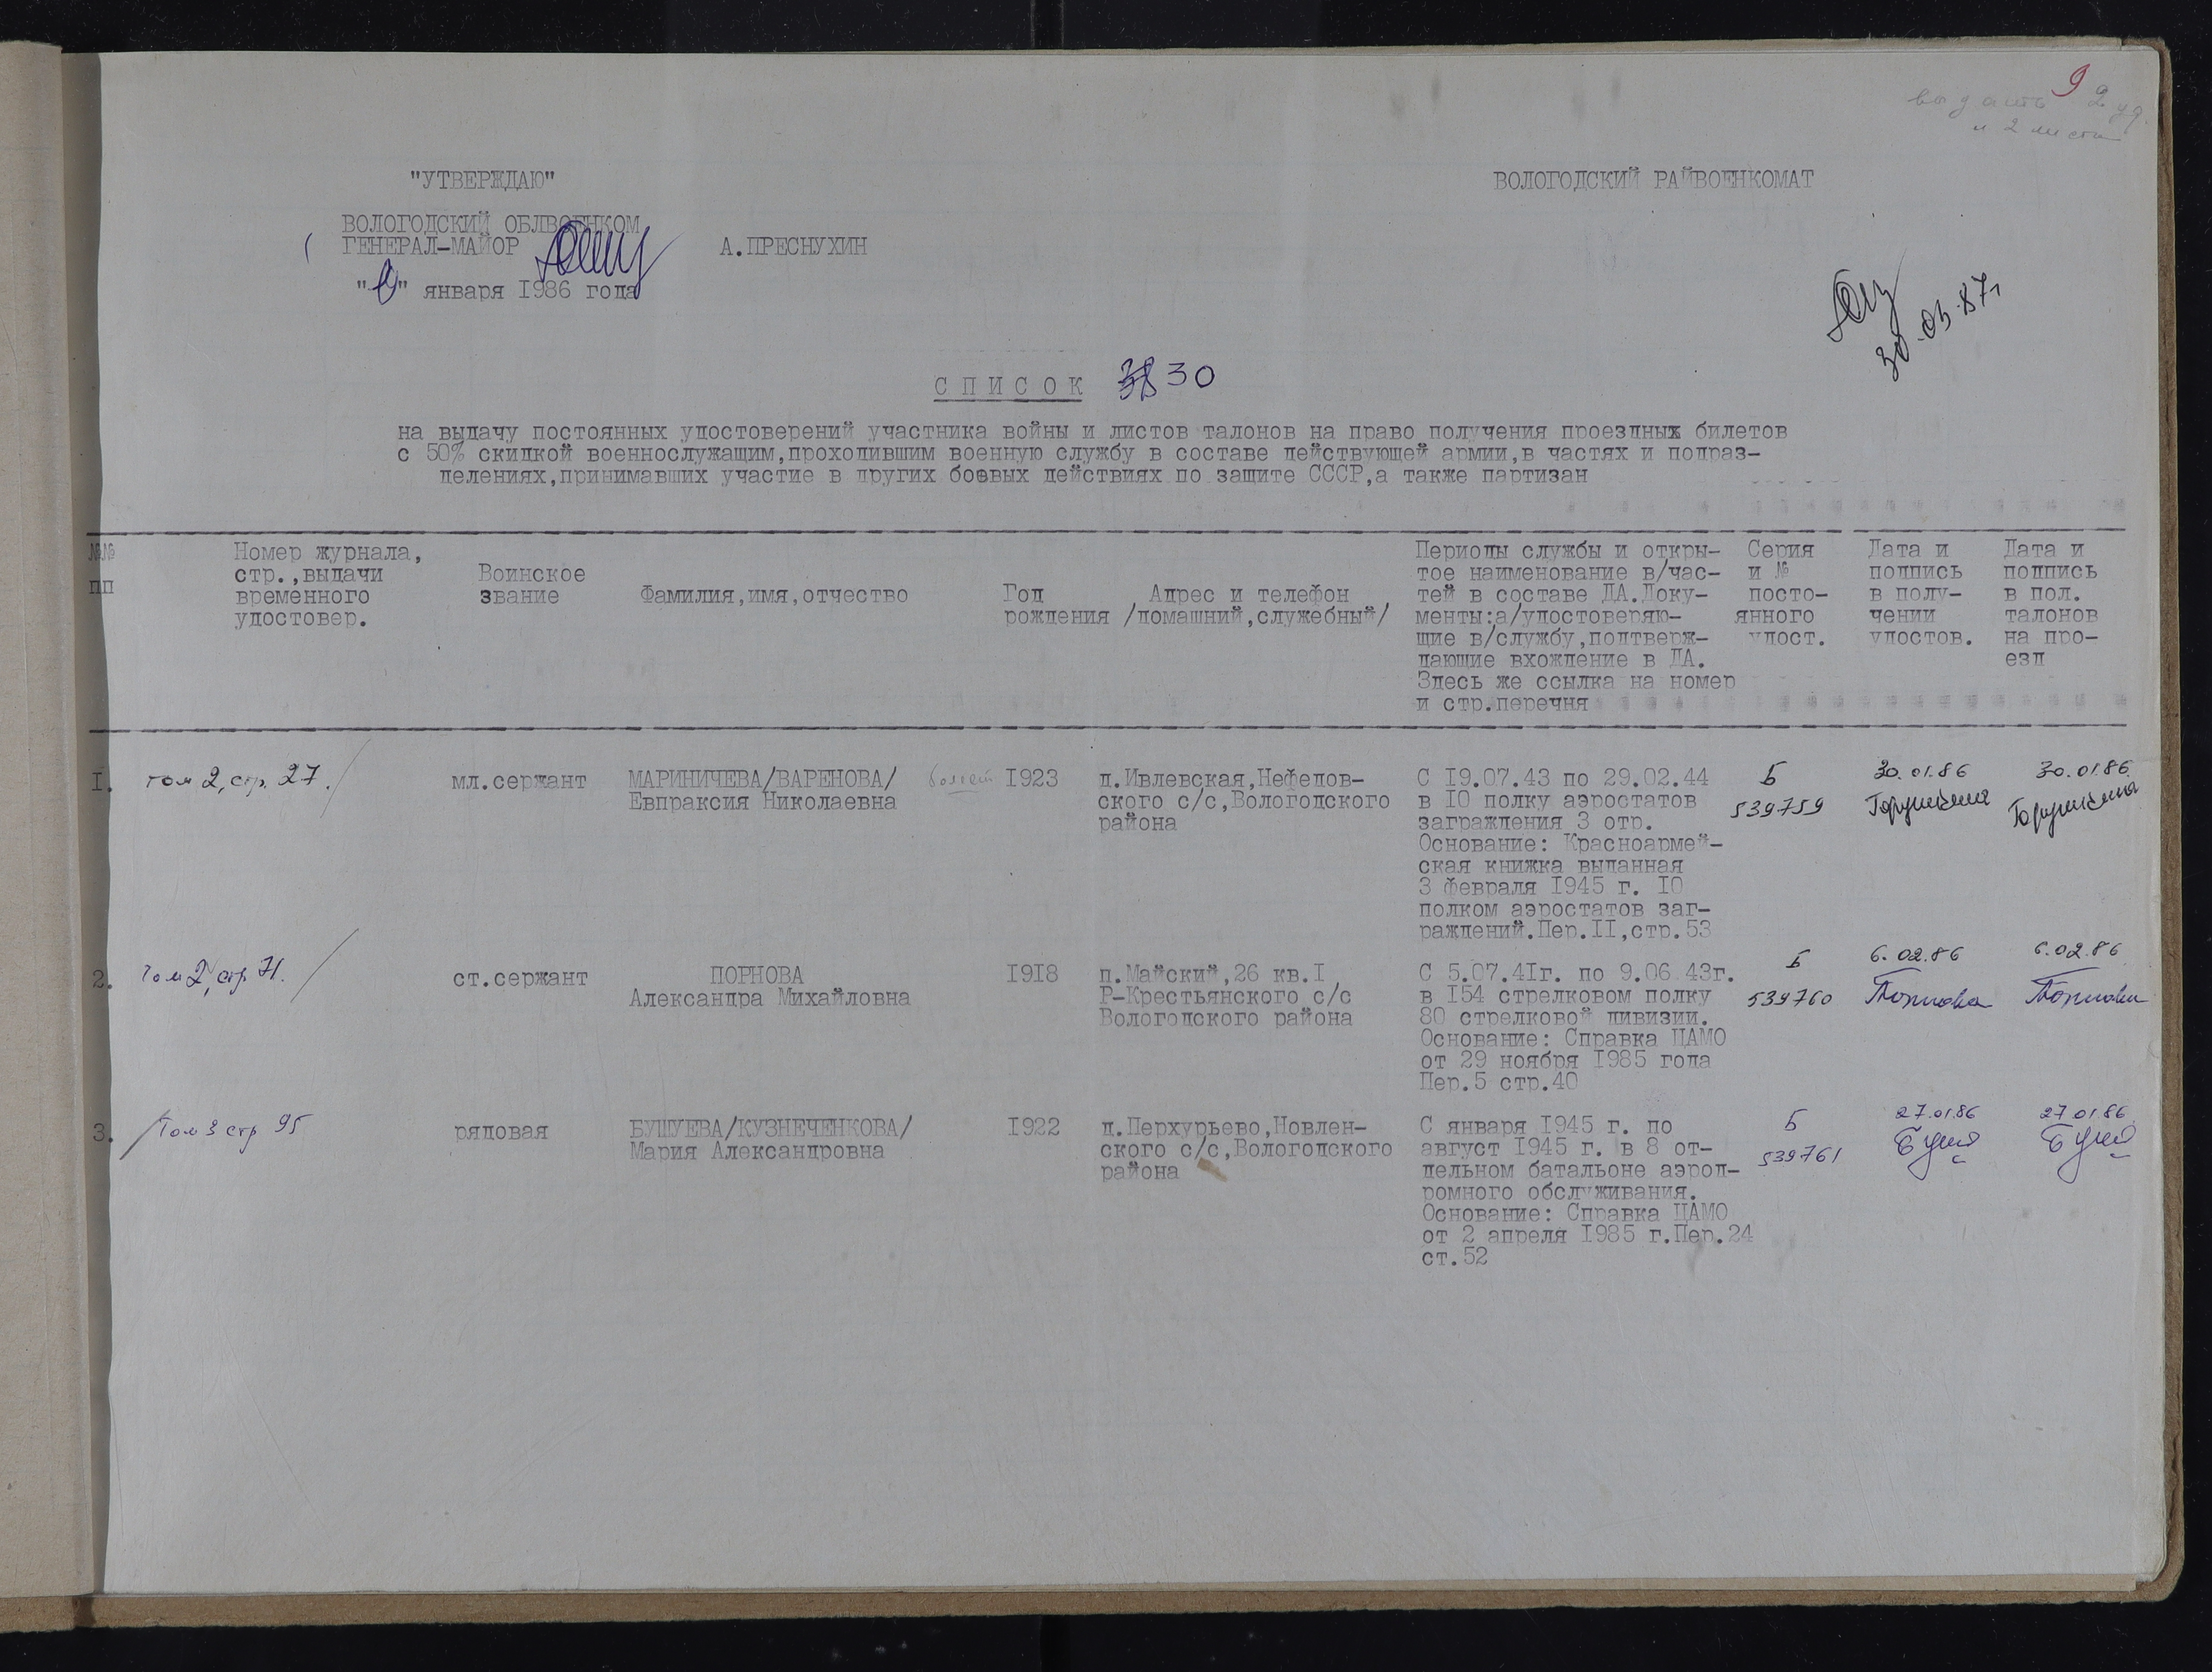 9
выдать 2 уд.
и 2 листа
"УТВЕРЖДАЮ"
ВОЛОГОДСКИЙ РАЙВОЕНКОМАТ
ВОЛОГОДСКИЙ ОБЛВОЕНКОМ
ГЕНЕРАЛ-МАЙОР А.ПРЕСНУХИН
" " января 1986 года
30.03.87г
СПИСОК 30
на выдачу постоянных удостоверений участника войны и листов талонов на право получения проездных билетов
с 50% скидкой военнослужащим,проходившим военную службу в составе действующей армии,в частях и подраз-
делениях,принимавших участие в других боевых действиях по защите СССР,а также партизан
№№
пп
Номер журнала,
стр.,выдачи
временного
удостовер.
Воинское
звание
Фамилия,имя,отчество
Год
рождения
Адрес и телефон
/домашний,служебный/
Периоды службы и откры-
тое наименование в/час-
тей в составе ДА.Доку-
менты:а/удостоверяю-
щие в/службу,подтверж-
дающие вхождение в ДА.
Здесь же ссылка на номер
и стр.перечня
Серия
и №
посто-
янного
удост.
Дата и
подпись
в полу-
чении
удостов.
Дата и
подпись
в пол.
талонов
на про-
езд
1.
том 2, стр. 27.
мл.сержант
МАРИНИЧЕВА/ВАРЕНОВА/
Евпраксия Николаевна
болеет
1923
д.Ивлевская,Нефедов-
ского с/с,Вологодского
района
С 19.07.43 по 29.02.44
в 10 полку аэростатов
заграждения 3 отр.
Основание: Красноармей-
ская книжка выданная
3 февраля 1945 г. 10
полком аэростатов заг-
раждений.Пер.II,стр.53
Б
539759
30.01.86
30.01.86
2.
том 2, стр 71.
ст.сержант
ПОРНОВА
Александра Михайловна
1918
п.Майский,26 кв.1
Р-Крестьянского с/с
Вологодского района
С 5.07.41г. по 9.06.43г.
в 154 стрелковом полку
80 стрелковой дивизии.
Основание: Справка ЦАМО
от 29 ноября 1985 года
Пер.5 стр.40
Б
539760
6.02.86
Порнова
6.02.86
Порнова
3.
Том 3 стр 95
рядовая
БУШУЕВА/КУЗНЕЧЕНКОВА/
Мария Александровна
1922
д.Перхурьево,Новлен-
ского с/с,Вологодского
района
С января 1945 г. по
август 1945 г. в 8 от-
дельном батальоне аэрод-
ромного обслуживания.
Основание: Справка ЦАМО
от 2 апреля 1985 г.Пер.24
ст.52
Б
539761
27.01.86
Буш
27.01.86
Буш